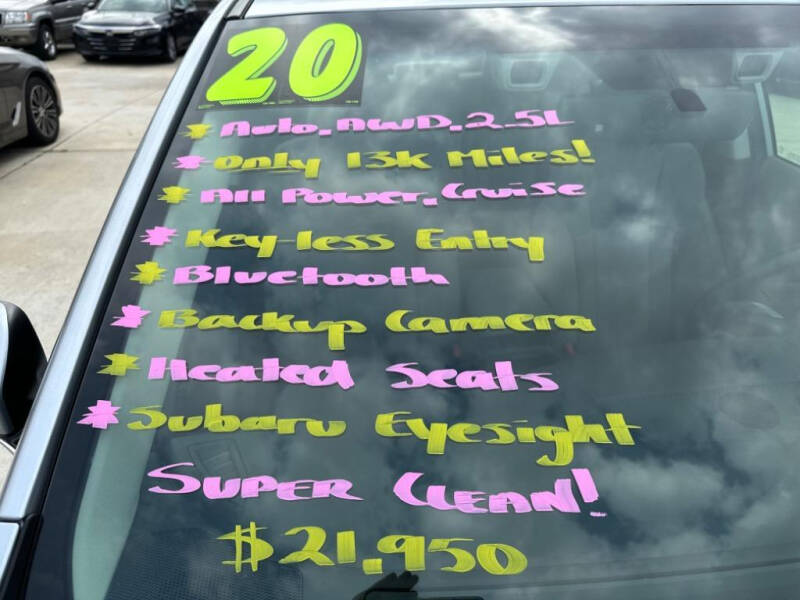 20
Auto. AWD. 2.5L
Only 13K Miles!
All Power. Cruise
Key-less Entry
Bluetooth
Backup Camera
Heated Seats
Subaru Eyesight
Super Clean!
$21,950